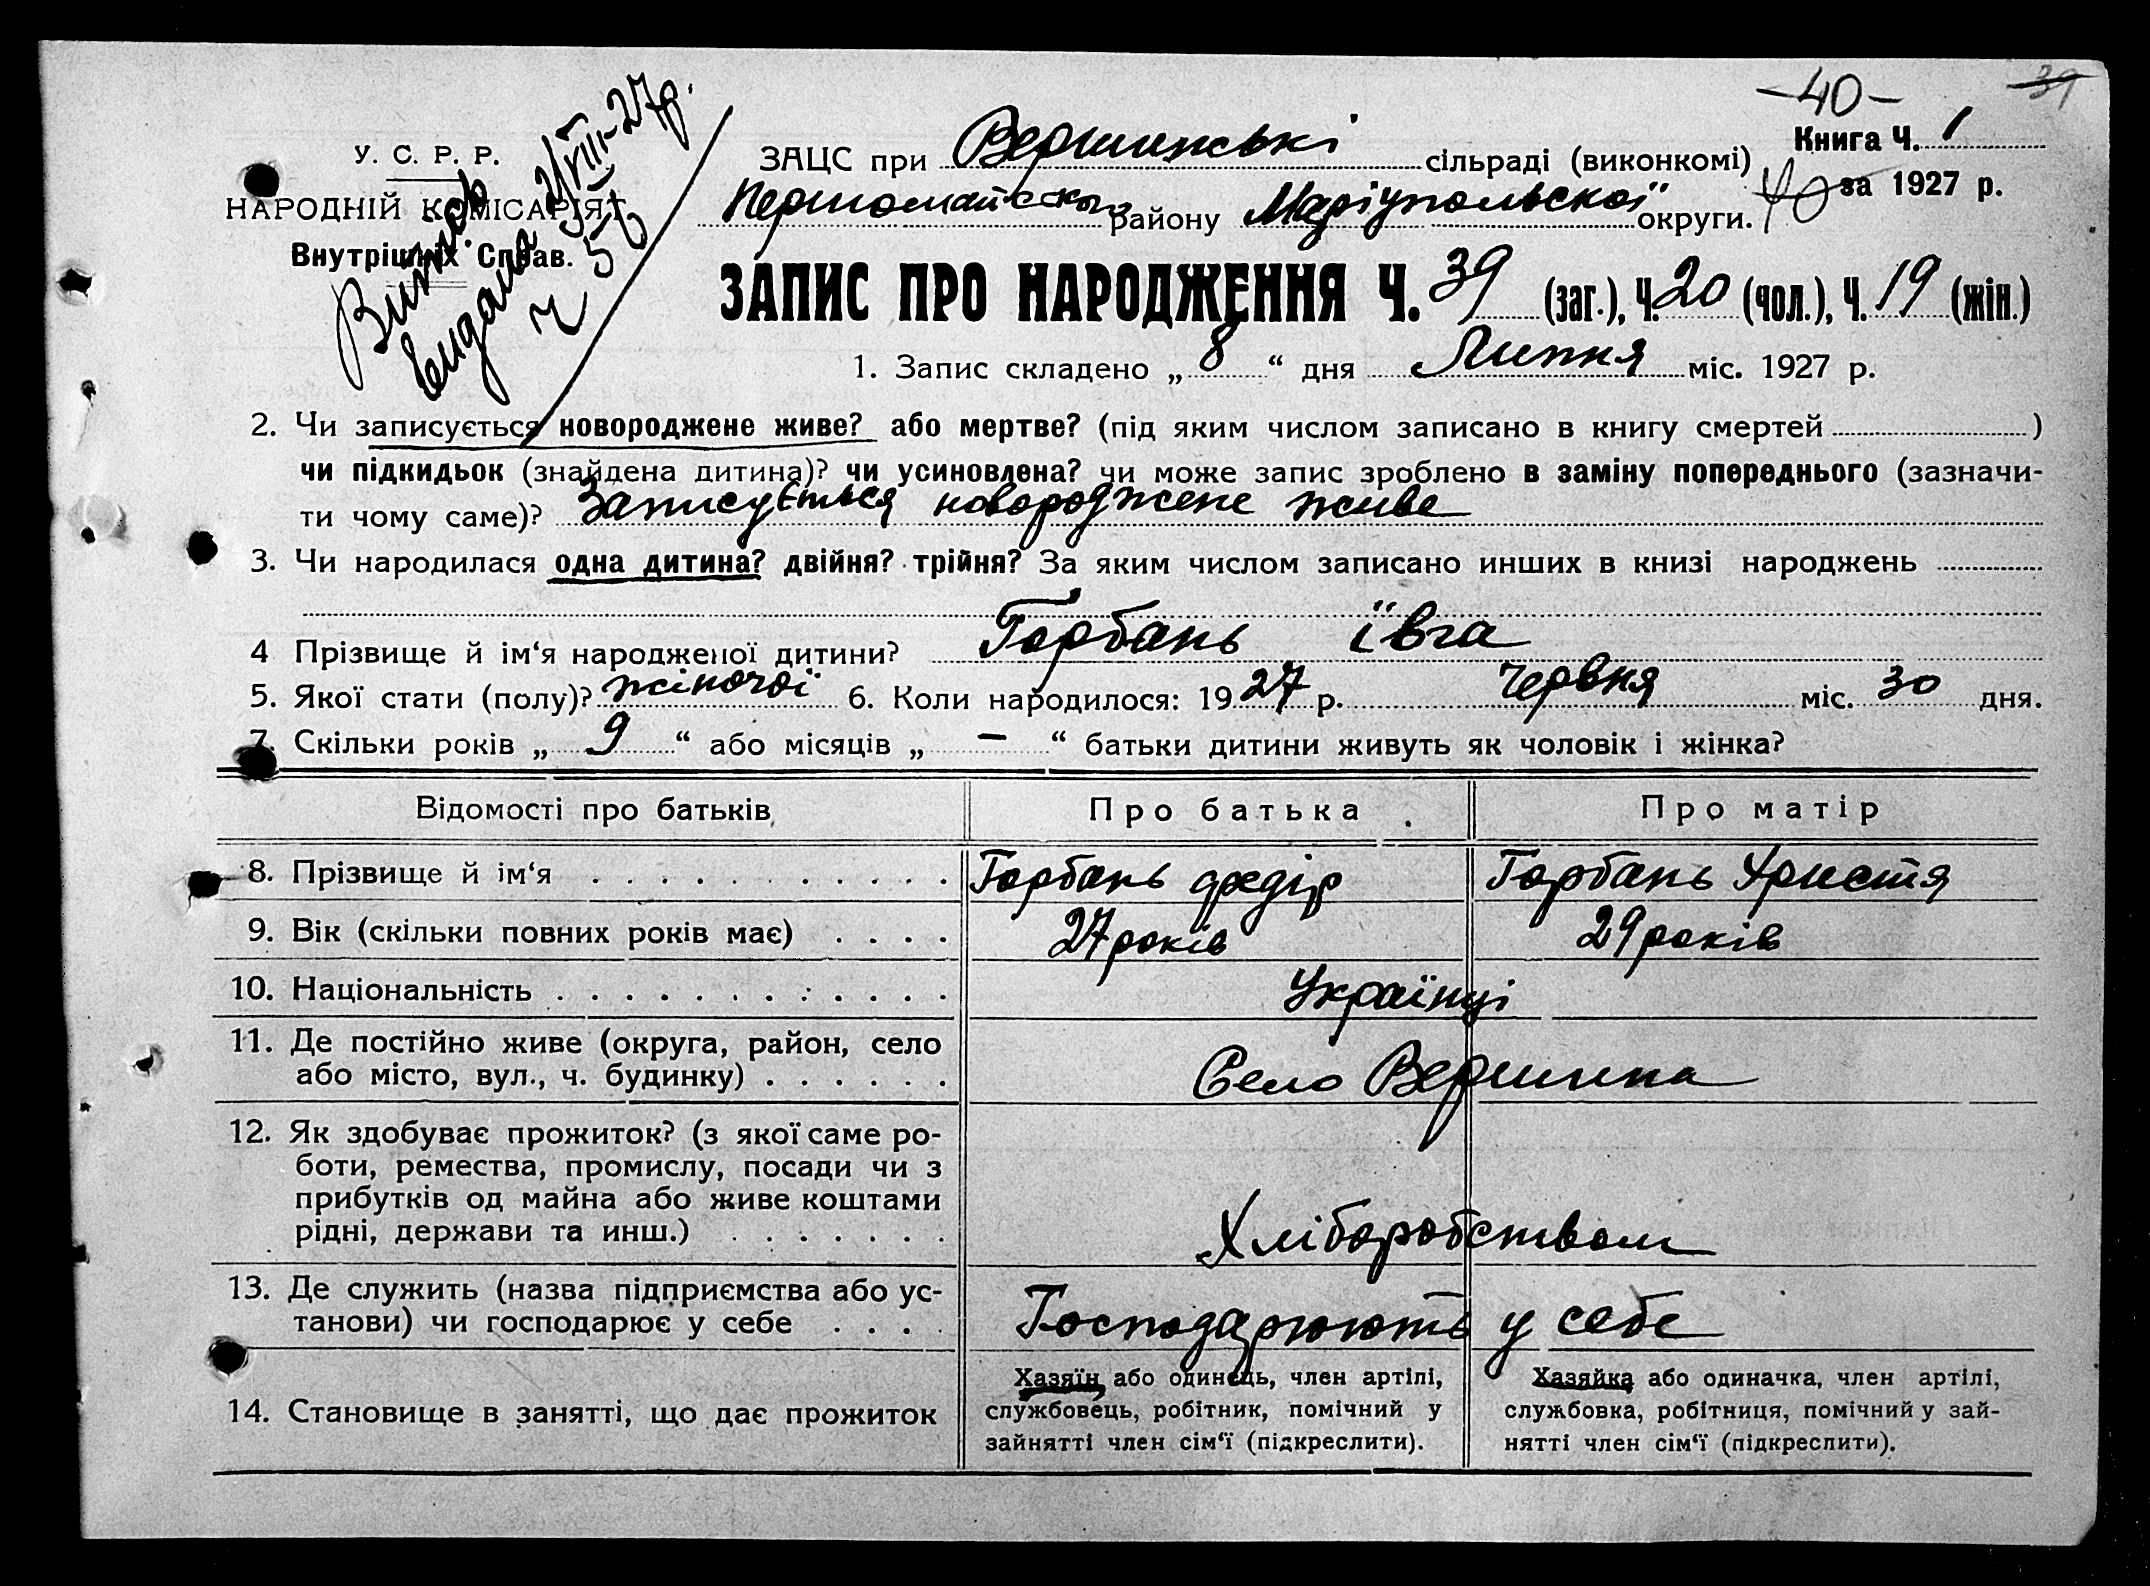 -40-
39
Книга Ч. 1
У. С. Р. Р.
НАРОДНІЙ КОМІСАРІЯТ
Внутрішніх Справ.
Витяг
видано 2/VIII-27р.
ч 56
ЗАЦС при Вершинській сільраді (виконкомі)
40 за 1927 р.
Першомайського району Маріупольської округи.
ЗАПИС ПРО НАРОДЖЕННЯ Ч. 39 (заг.), Ч. 20 (чол.), Ч. 19 (жін.)
1. Запис складено „ 8 “ дня Липня міс. 1927 р.
2. Чи записується новороджене живе? або мертве? (під яким числом записано в книгу смертей )
чи підкидьок (знайдена дитина)? чи усиновлена? чи може запис зроблено в заміну попереднього (зазначи-
ти чому саме)? Записується новороджене живе
3. Чи народилася одна дитина? двійня? трійня? За яким числом записано инших в книзі народжень
4 Прізвище й ім‘я народженої дитини? Горбань Ївга
5. Якої стати (полу)? жіночої 6. Коли народилося: 1927 р. Червня міс. 30 дня.
7. Скільки років „ 9 “ або місяців „ — “ батьки дитини живуть як чоловік і жінка?
Відомості про батьків Про батька Про матір
8. Прізвище й ім‘я Горбань Федір Горбань Христя
9. Вік (скільки повних років має) 27 років 29 років
10. Національність Українці
11. Де постійно живе (округа, район, село
або місто, вул., ч. будинку) Село Вершина
12. Як здобуває прожиток? (з якої саме ро-
боти, ремества, промислу, посади чи з
прибутків од майна або живе коштами
рідні, держави та инш.) Хліборобством
13. Де служить (назва підприємства або ус-
танови) чи господарює у себе Господарюють у себе
14. Становище в занятті, що дає прожиток
Хазяїн або одинець, член артілі,
службовець, робітник, помічний у
зайнятті член сім‘ї (підкреслити).
Хазяйка або одиначка, член артілі,
службовка, робітниця, помічний у зай-
нятті член сім‘ї (підкреслити).